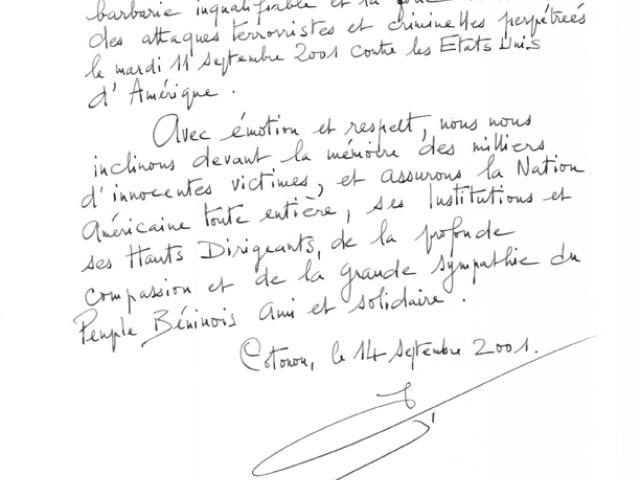 barbarie inqualifiable et la
des attaques terroristes et criminelles perpétrées
le mardi 11 septembre 2001 contre les Etats Unis
d'Amérique.
Avec émotion et respect, nous nous
inclinons devant la mémoire des milliers
d'innocentes victimes, et assurons la Nation
Américaine toute entière, ses Institutions et
ses Hauts Dirigeants, de la profonde
compassion et de la grande sympathie du
Peuple Béninois ami et solidaire.
Cotonou, le 14 septembre 2001.